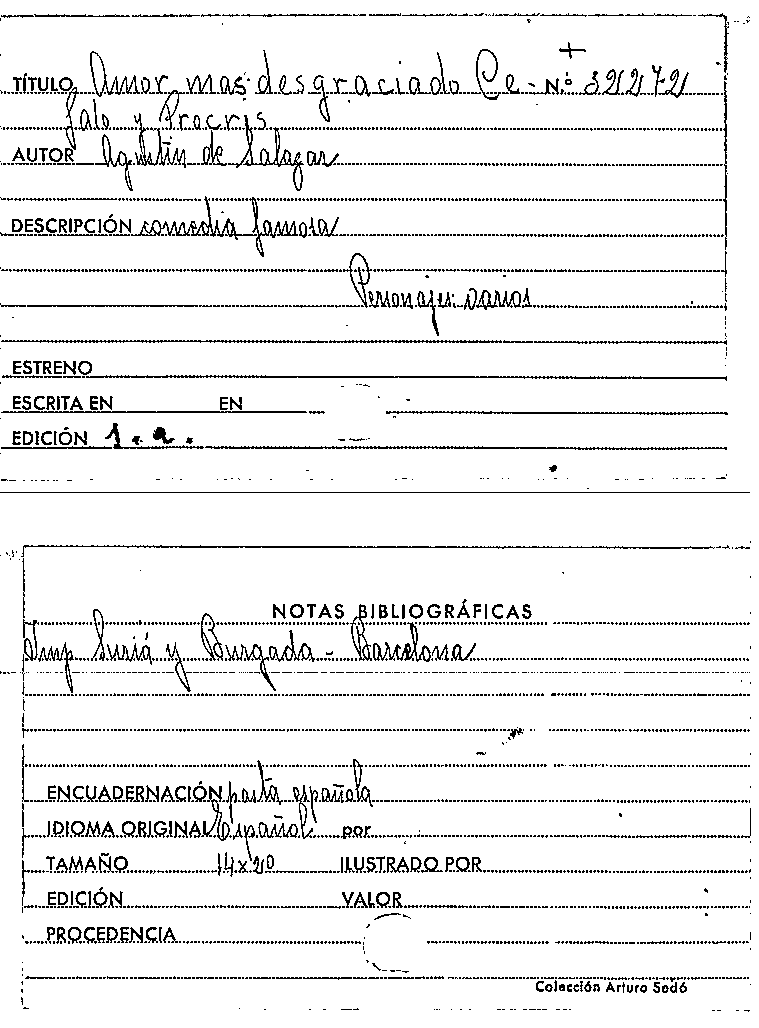 TÍTULO Amor mas desgraciado Ce- N.º 32272
falo y Procris
AUTOR Agustin de Salazar
DESCRIPCIÓN comedia famosa
Personajes: varios
ESTRENO
ESCRITA EN EN
EDICIÓN 1.a.
NOTAS BIBLIOGRÁFICAS
Imp Suriá y Burgada - Barcelona
ENCUADERNACIÓN pasta española
IDIOMA ORIGINAL Español por
TAMAÑO 14x20 ILUSTRADO POR
EDICIÓN VALOR
PROCEDENCIA
Colección Arturo Sedó